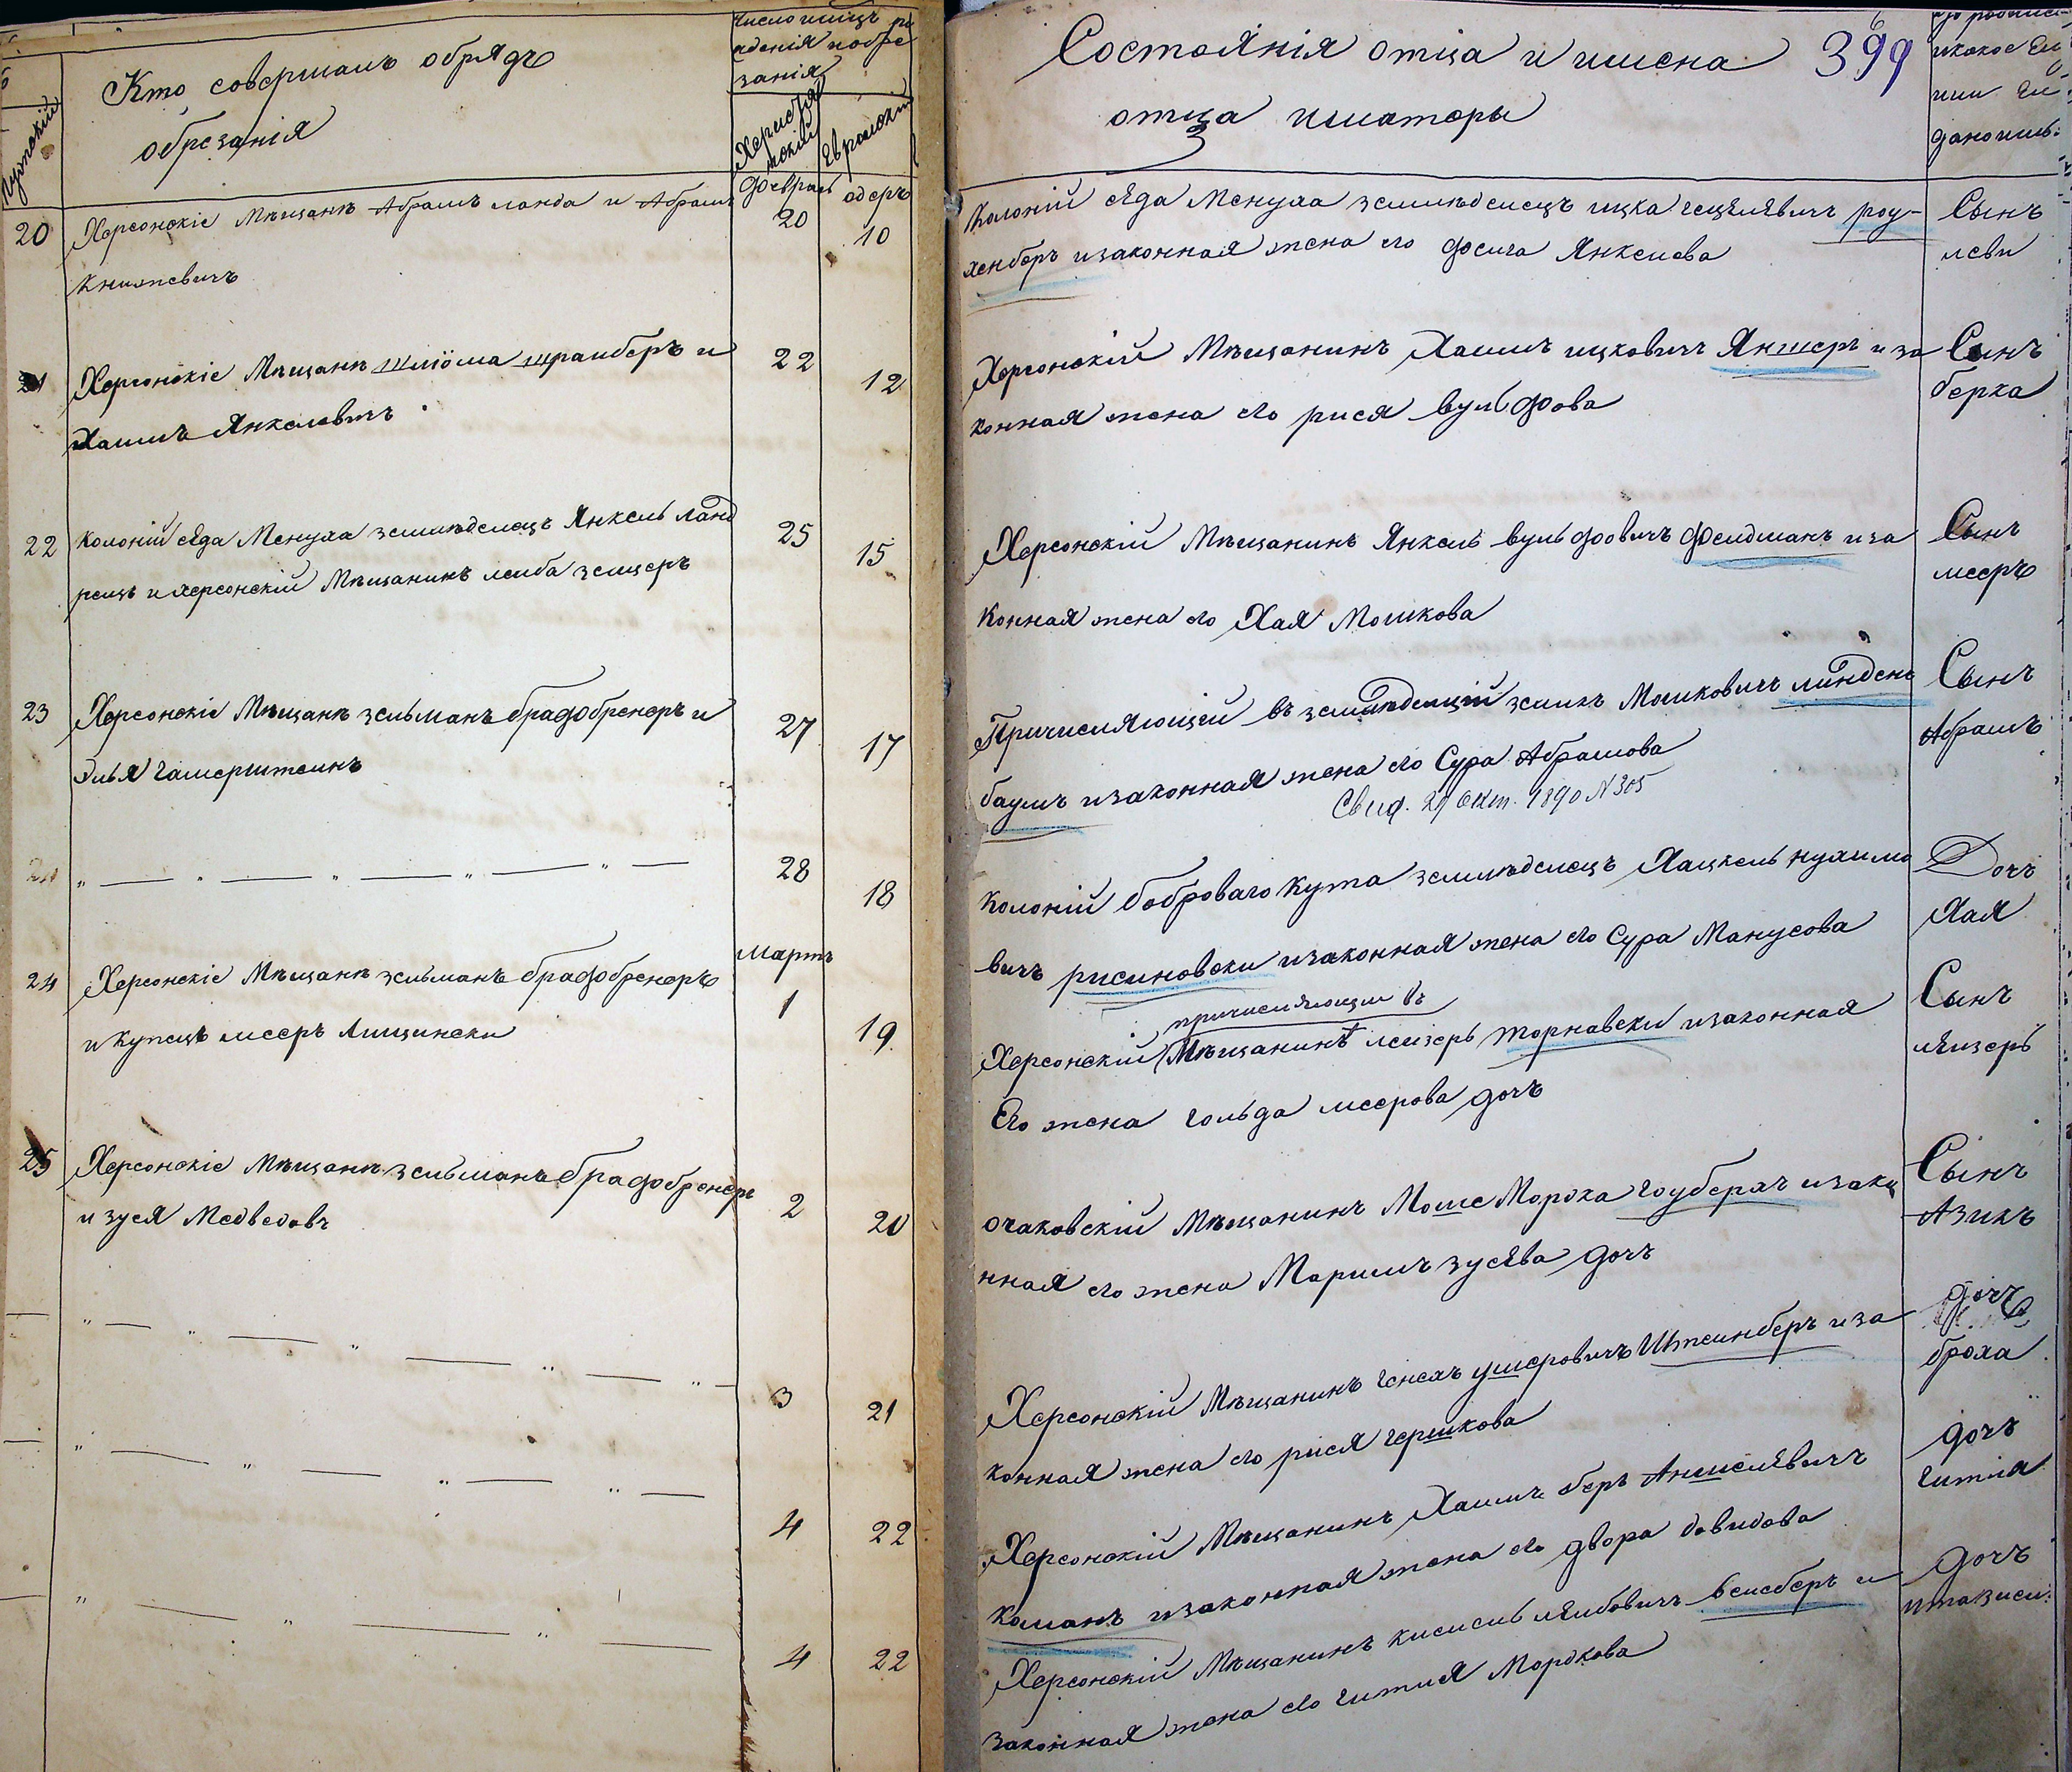 Кто совершалъ обрядъ
обрезанія
Число и
занія
Февраль
адеръ
20
Херсонскіе Мѣщанѣ Абрамъ ланда и Абрамъ
20
10
Книжевичъ
21
Херсонскіе Мѣщанѣ шліома
и
22
12
Хаимъ Янкелевичъ
22
Колоній сѣда Менуха земледелецъ Янкель ланд
25
15
и херсонскій Мѣщанинъ леиба зельцеръ
23
Херсонскіе Мѣщанѣ зельманъ брадобренеръ и
27
17
Элья гамерштеинъ
" — " — " — " — " —
28
18
Мартъ
24
Херсонскіе Мѣщанѣ зельманъ брадобренеръ
1
19
и купецъ мееръ Лищински
25
Херсонскіе Мѣщанѣ зельманъ брадобренеръ
2
20
и зуся Медведовъ
" — " — " — " — " —
3
21
" — " — " — " —
4
22
" — " — " —
4
22
Состоянія отца и имена 399
отца иматеры
Колоній сѣда Менуха земледелецъ ицка гецелявичъ роу-
хенберъ изаконная жена его фейга Янкелева
Сынъ
леви
Херсонскій Мѣщанинъ Хаимъ ицковичъ Яншеръ и за
конная жена его рися вульфова
Сынъ
берка
Херсонскій Мѣщанинъ Янкель вульфовичъ фельдманъ иза
конная жена его Хая Мошкова
Сынъ
мееръ
Причисляющей въ земледелцы зеликъ Мошковичъ линден
баумъ изаконная жена его Сура Абрамова
Свид. 29 Окт. 1890 N 305
Сынъ
Абрамъ
Колоній боброваго кута земледелецъ Хацкель нухимо
вичъ рисиновски изаконная жена его Сура Манусова
Дочъ
Хая
причисляющии въ
Херсонскій Мѣщанинъ леизеръ торнавски изаконная
Его жена гольда меерова дочъ
Сынъ
леизеръ
очаковскій Мѣщанинъ Моше Мордха гоуберахъ изако
нная его жена Маримъ зусява дочъ
Сынъ
Азикъ
Херсонскій Мѣщанинъ генехъ ушеровичъ Штеинберъ иза
конная жена его рися гершкова
дочъ
броха
Херсонскій Мѣщанинъ Хаимъ беръ Аншелявичъ
каманъ изаконная жена его двора давидова
дочъ
гития
Херсонскій Мѣщанинъ кисиель леибовичъ веисберъ и
законная жена его гития Мордкова
дочъ